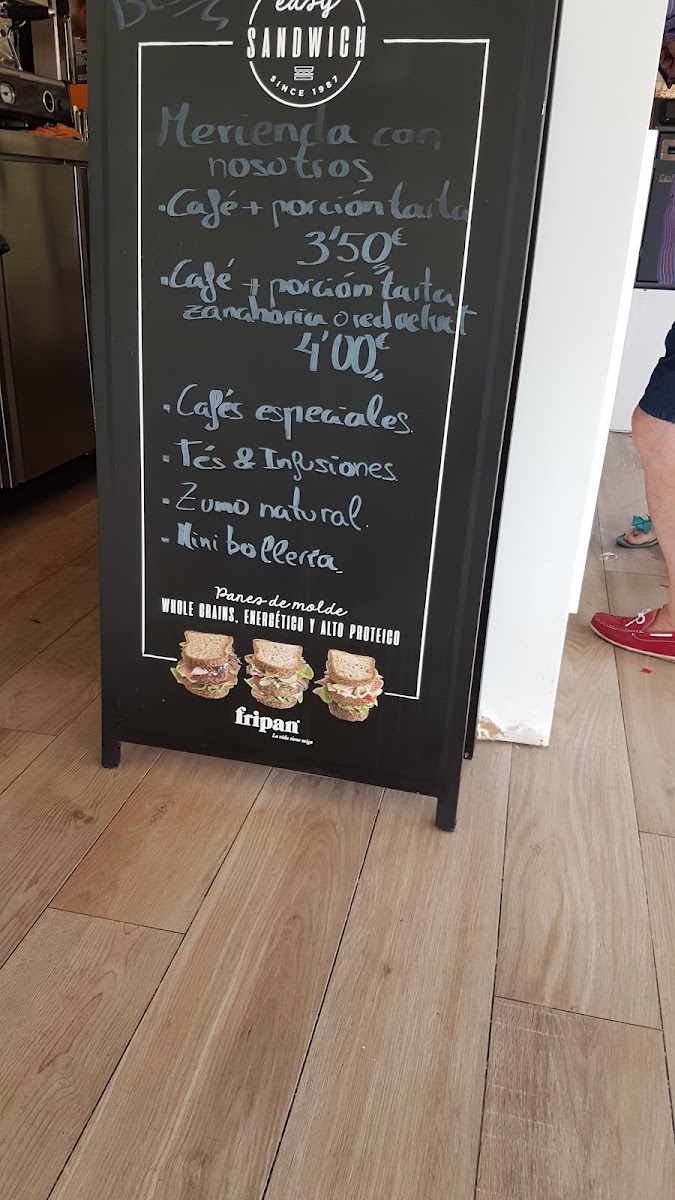 easy
SANDWICH
SINCE 1987
Merienda con
nosotros
·Café + porción tarta
3'50€
·Café + porción tarta
zanahoria o red velvet
4'00€
· Cafés especiales.
· Tés & Infusiones
· Zumo natural.
- Mini bollería
Panes de molde
WHOLE GRAINS, ENERGÉTICO Y ALTO PROTEICO
fripan
La vida tiene miga